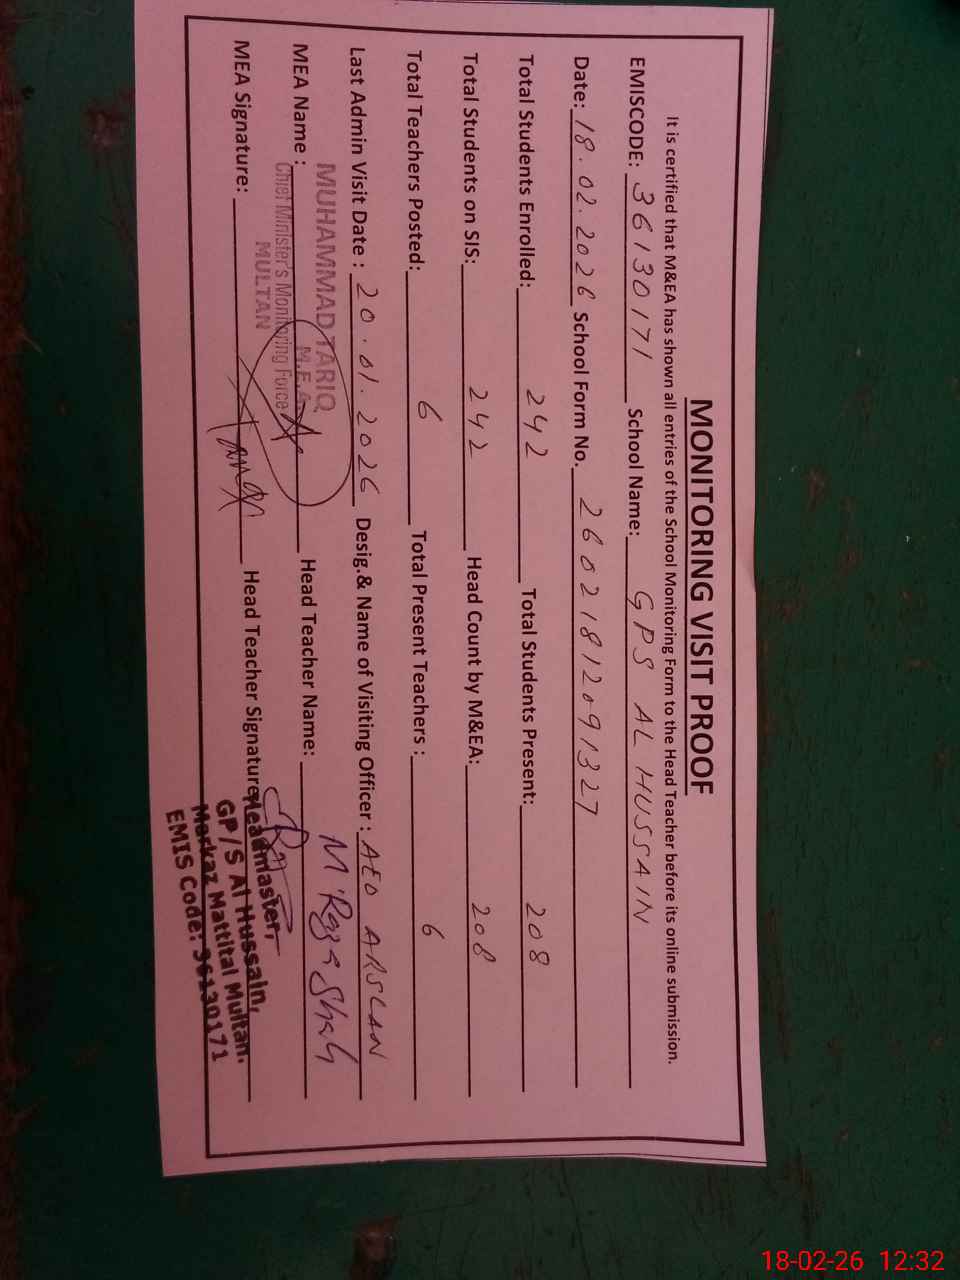 MONITORING VISIT PROOF
It is certified that M&EA has shown all entries of the School Monitoring Form to the Head Teacher before its online submission.
EMISCODE: 36130171 School Name: GPS AL HUSSAIN
Date: 18.02.2026 School Form No. 26021812091327
Total Students Enrolled: 242 Total Students Present: 208
Total Students on SIS: 242 Head Count by M&EA: 208
Total Teachers Posted: 6 Total Present Teachers : 6
Last Admin Visit Date : 20.01.2026 Desig.& Name of Visiting Officer : AEO ARSLAN
MUHAMMAD TARIQ
M.E.A
MEA Name : Head Teacher Name: M Raza Shah
Chief Minister's Monitoring Force
MULTAN
MEA Signature: Head Teacher Signature:
Headmaster,
GP/S Al Hussain,
Markaz Mattital Multan.
EMIS Code: 36130171
18-02-26 12:32